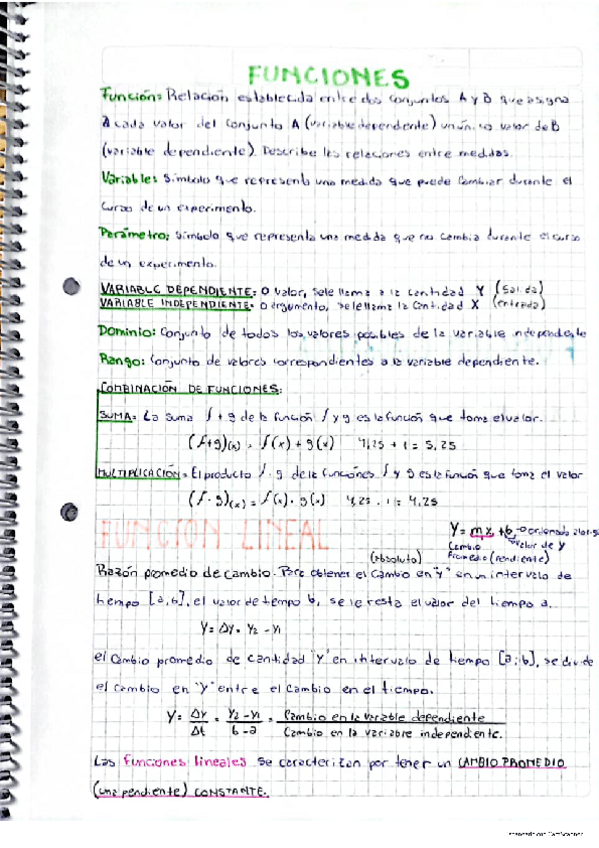 FUNCIONES
Función: Relación establecida entre dos conjuntos A y B que asigna
a cada valor del conjunto A (variable dependiente) un único valor de B
(variable dependiente). Describe las relaciones entre medidas.
Variable: Símbolo que representa una medida que puede cambiar durante el
curso de un experimento.
Parámetro: símbolo que representa una medida que no cambia durante el curso
de un experimento.
VARIABLE DEPENDIENTE: o valor, se le llama a la cantidad Y (salida)
VARIABLE INDEPENDIENTE: o argumento, se le llama la cantidad X (entrada)
Dominio: Conjunto de todos los valores posibles de la variable independiente
Rango: Conjunto de valores correspondientes a la variable dependiente.
COMBINACIÓN DE FUNCIONES:
SUMA: La suma f + g de la función f y g es la función que toma el valor.
(f+g)(x) = f(x) + g(x) 4,25 + 1 = 5,25
MULTIPLICACIÓN: El producto f · g de la funciones f y g es la función que toma el valor
(f · g)(x) = f(x) · g(x) 4,25 · 1 = 4,25
FUNCIÓN LINEAL
Y = mx + b → ordenada
valor de Y
Cambio
Promedio (pendiente)
(absoluto)
Razón promedio de cambio. Para obtener el cambio en "Y" en un intervalo de
tiempo [a,b], el valor de tiempo b, se le resta el valor del tiempo a.
Y = ΔY = Y2 - Y1
el cambio promedio de cantidad "Y" en intervalo de tiempo [a;b], se divide
el cambio en "Y" entre el cambio en el tiempo.
Y = ΔY = Y2 - Y1 = Cambio en la variable dependiente
Δt b - a Cambio en la variable independiente.
Las funciones lineales se caracterizan por tener un CAMBIO PROMEDIO
(una pendiente) CONSTANTE.